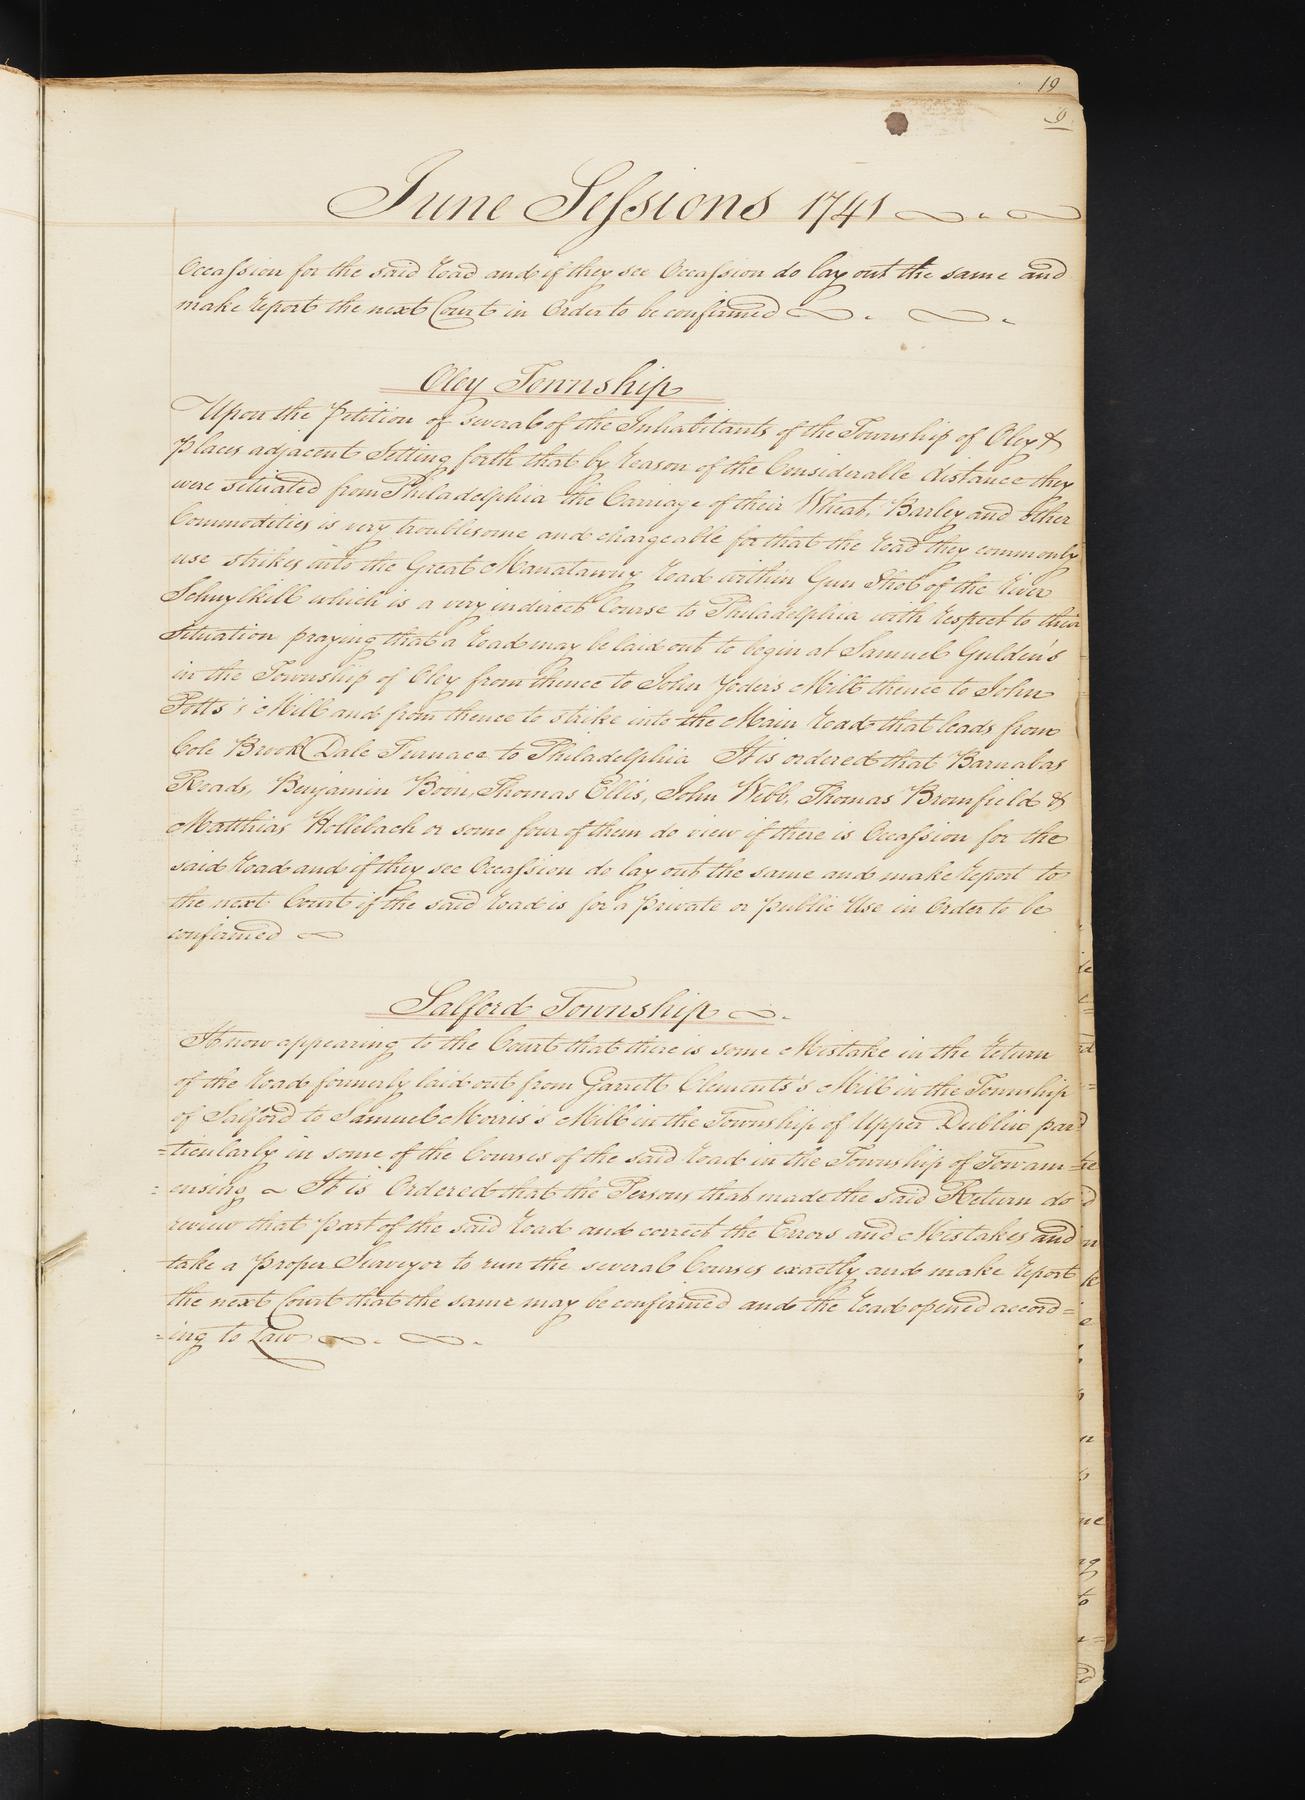 19
9
June Sessions 1741
Occassion for the said Road and if they see Occassion do lay out the same and
make Report the next Court in Order to be confirmed
Oley Township
Upon the Petition of several of the Inhabitants of the Township of Oley &
Places adjacent Setting forth that by Reason of the Considerable distance they
were situated from Philadelphia the Carriage of their Wheat, Barley and other
Commodities is very troublesome and chargeable for that the Road they commonly
use strikes into the Great Manatawny Road within Gun Shot of the River
Schuylkill which is a very indirect Course to Philadelphia with Respect to their
Situation praying that a Road may be laid out to begin at Samuel Gulden's
in the Township of Oley from thence to John Yoder's Mill thence to John
Potts's Mill and from thence to strike into the Main Road that leads from
Cole Brook Dale Furnace to Philadelphia It is ordered that Barnabas
Roads, Benjamin Boon, Thomas Ellis, John Webb, Thomas Bromfield &
Matthias Hollebach or some four of them do view if there is Occassion for the
said Road and if they see Occassion do lay out the same and make Report to
the next Court if the said Road is for a Private or Public Use in Order to be
confirmed
Salford Township
It now appearing to the Court that there is some Mistake in the Return
of the Road formerly laid out from Garrett Clements's Mill in the Township
of Salford to Samuel Morris's Mill in the Township of Upper Dublin par
=ticularly in some of the Courses of the said Road in the Township of Towam=
=ensing It is Ordered that the Persons that made the said Return do
review that Part of the said Road and correct the Errors and Mistakes and
take a Proper Surveyor to run the several Courses exactly and make Report
the next Court that the same may be confirmed and the Road opened accord=
=ing to Law